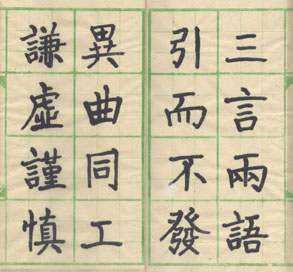 三言兩語
引而不發
異曲同工
謙虛謹慎